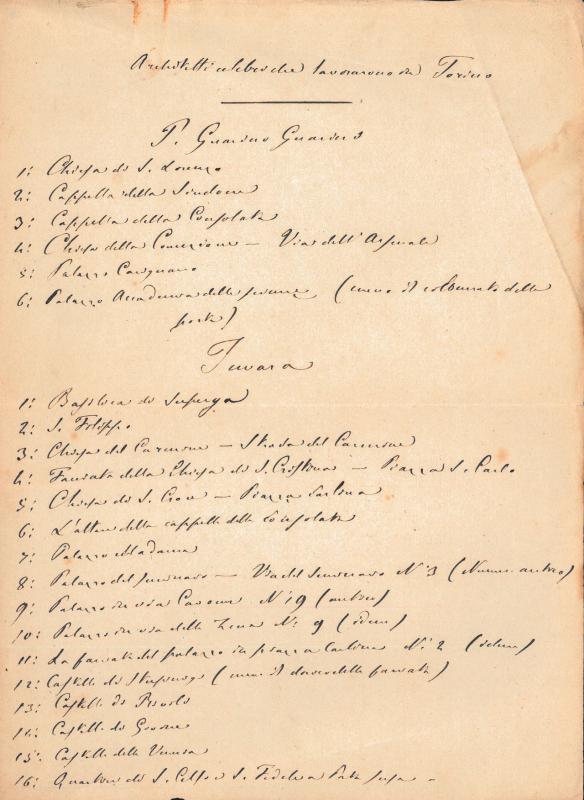 Architetti celebri che lavorarono in Torino
P. Guarino Guarini
1: Chiesa di S. Lorenzo
2: Cappella della Sindone
3: Cappella della Consolata
4: Chiesa della Concezione — Via dell'Arsenale
5: Palazzo Carignano
6: Palazzo Accademia delle scienze (meno il colonnato della
porta)
Juvara
1: Basilica di Superga
2: S. Filippo
3: Chiesa del Carmine — Strada del Carmine
4: Facciata della Chiesa di S. Cristina — Piazza S. Carlo
5: Chiesa di S. Croce — Piazza Carlina
6: L'altare della cappella della Consolata
7: Palazzo Madama
8: Palazzo del Seminario — Via del Seminario N° 3 (Numer. antico)
9: Palazzo in via Cavour N° 19 (antico)
10: Palazzo in via della Zecca N: 9 (idem)
11: La facciata del palazzo in piazza Carlina N: 2 (idem)
12: Castello di Stupinigi (meno il della facciata)
13: Castello di Rivoli
14: Castello di Govone
15: Castello della Veneria
16: Quartieri di S. Celso e S. Fedele a Porta Susa —